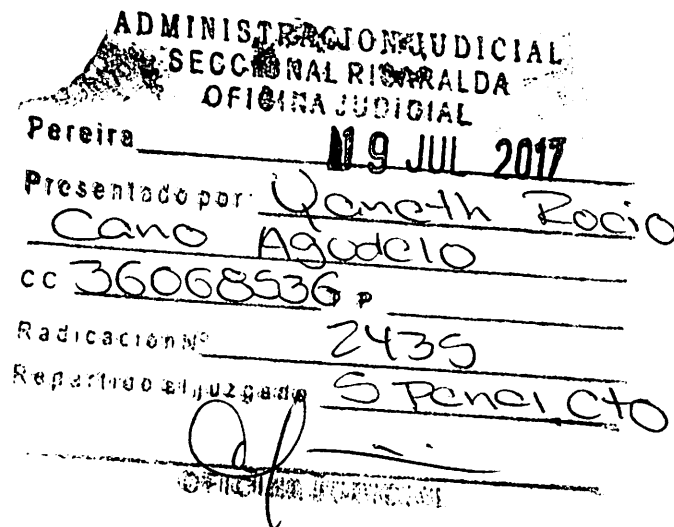 ADMINISTRACION JUDICIAL
SECCIONAL RISARALDA
OFICINA JUDICIAL
Pereira 19 JUL 2017
Presentado por: Yaneth Rocio
Cano Agudelo
CC 36068536 T P
Radicación Nº 2435
Repartido al juzgado 5 Penal Cto
OFICINA JUDICIAL